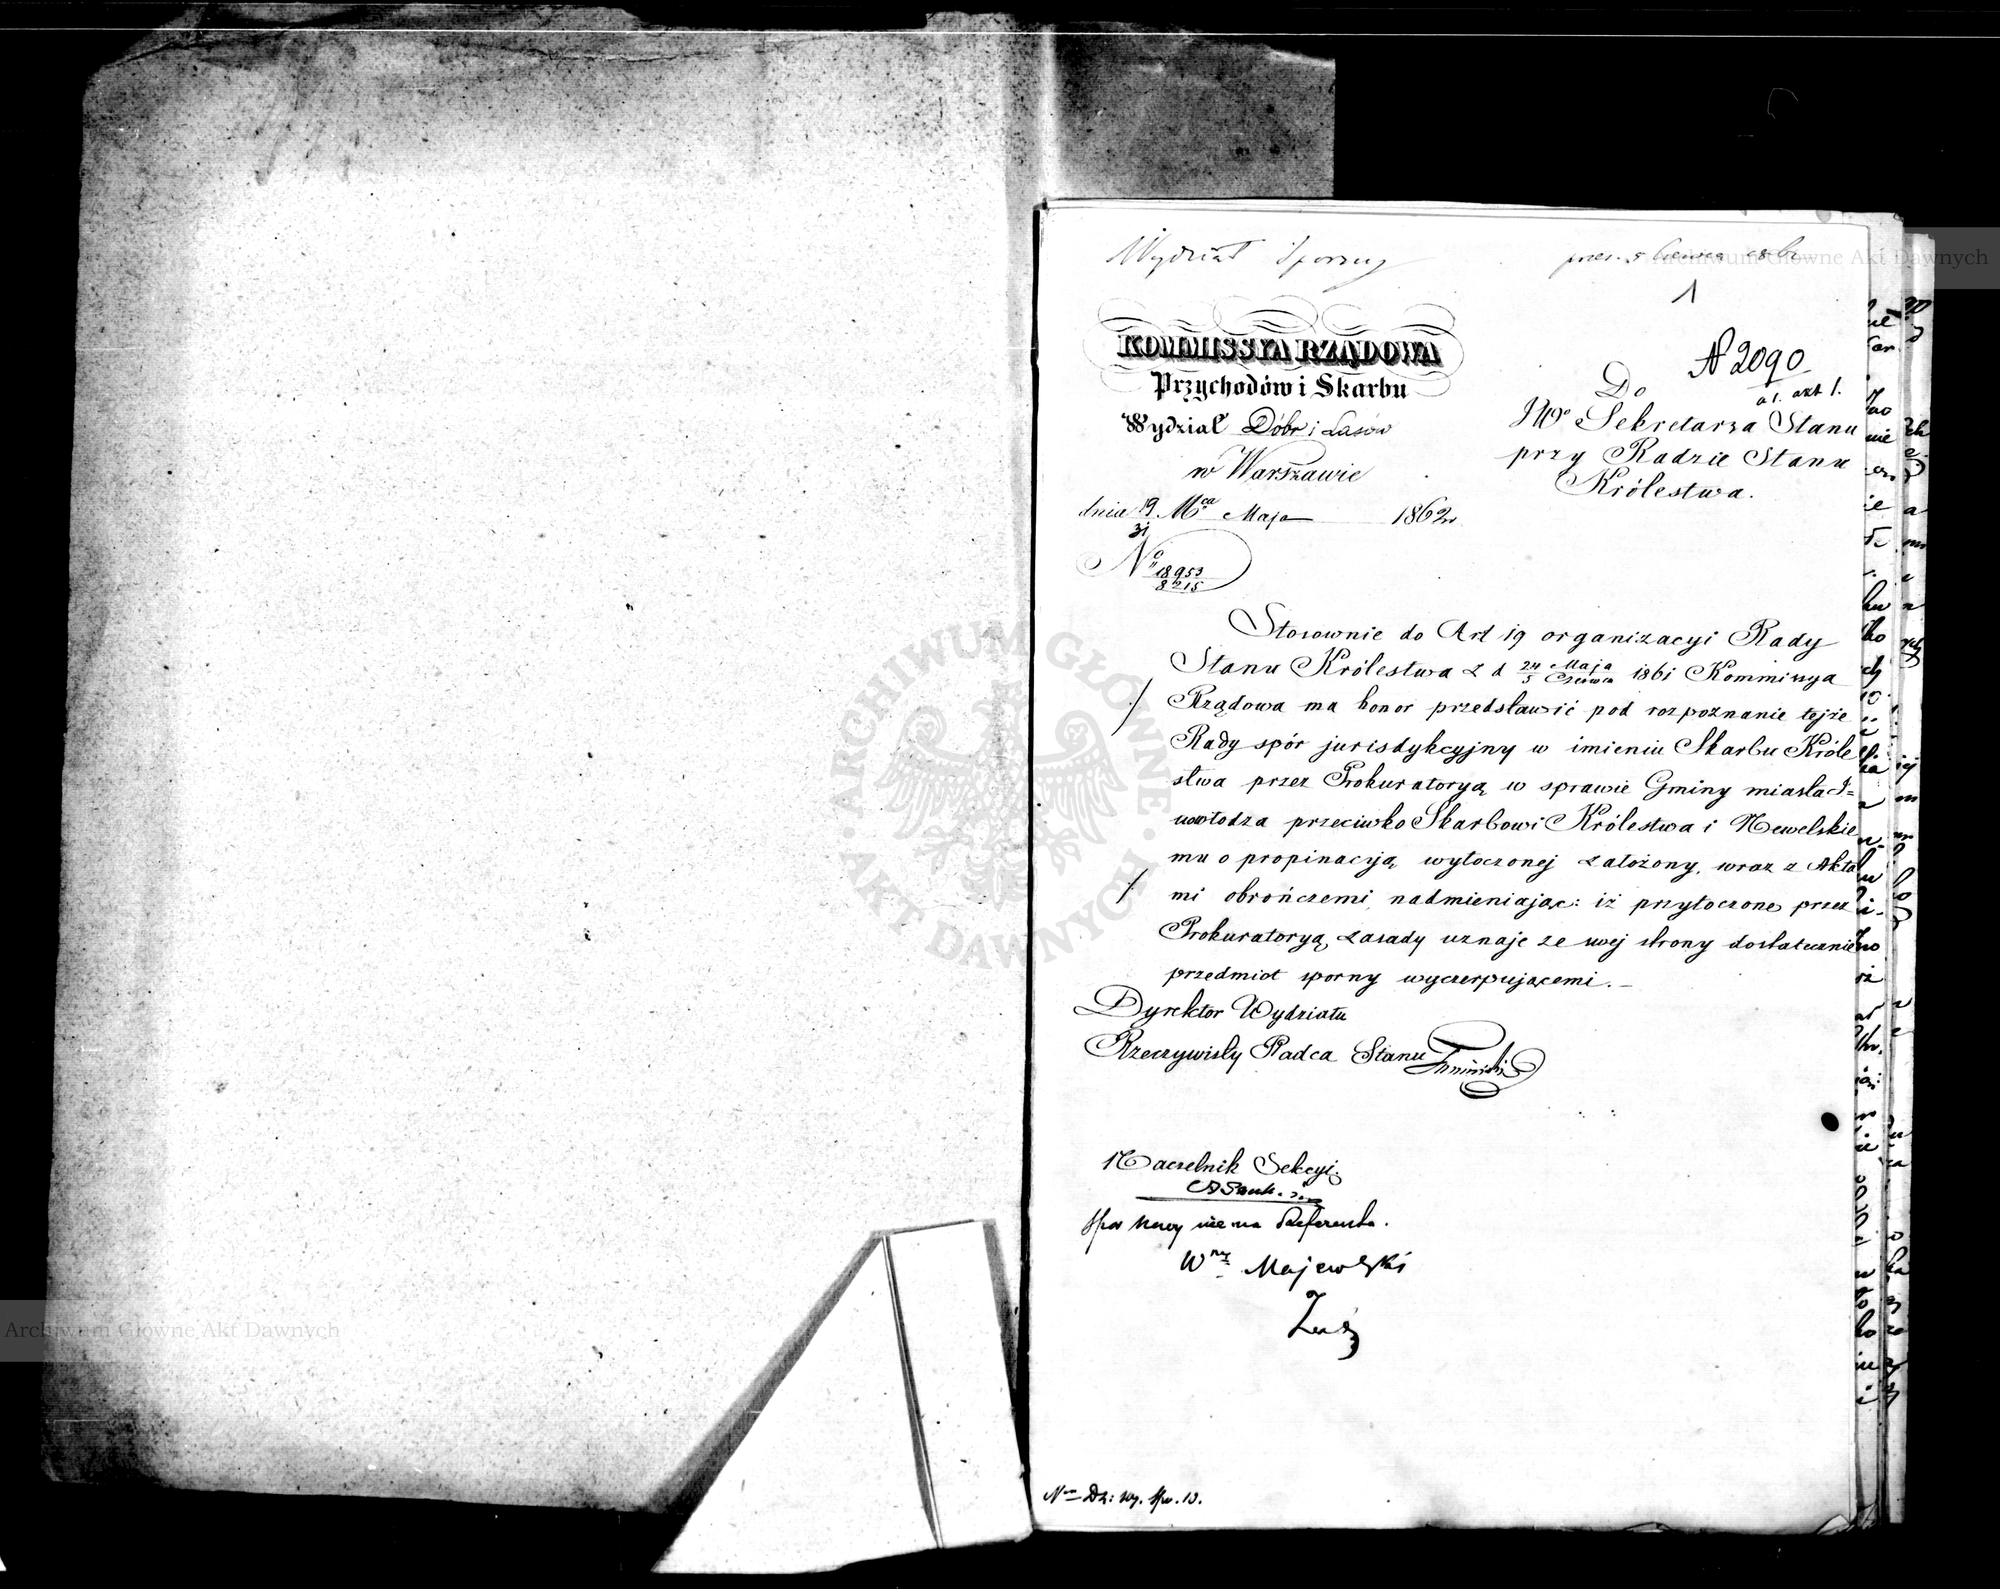 Wydział Sporny
pres. 5 Czerwca 1862
1
KOMMISSYA RZĄDOWA
Przychodów i Skarbu
Wydział Dóbr i Lasów
w Warszawie
dnia 19/31 Mca Maja 1862 r.
No 18953/8215
N 2090
a 1. akt 1.
Do
JWo Sekretarza Stanu
przy Radzie Stanu
Królestwa.
Stosownie do Art 19 organizacyi Rady
Stanu Królestwa z d 24 Maja/5 Czerwca 1861 Kommissya
Rządowa ma honor przedstawić pod rozpoznanie tejże
Rady spór jurisdykcyjny w imieniu Skarbu Króle
stwa przez Prokuratoryą w sprawie Gminy miasta I=
nowłodza przeciwko Skarbowi Królestwa i Newelskie
mu o propinacyją wytoczonej założony, wraz z Akta
mi obrończemi, nadmieniając: iż przytoczone przez
Prokuratoryą zasady uznaje ze swej strony dostatecznie
przedmiot sporny wyczerpującemi. –
Dyrektor Wydziału
Rzeczywisty Radca Stanu
Naczelnik Sekcyi
Spór nowy nie ma Referenta.
Wny Majewski
Nr Dz: Wy. Spo. 13.
ARCHIWUM GŁÓWNE
AKT DAWNYCH
Archiwum Główne Akt Dawnych
Archiwum Główne Akt Dawnych